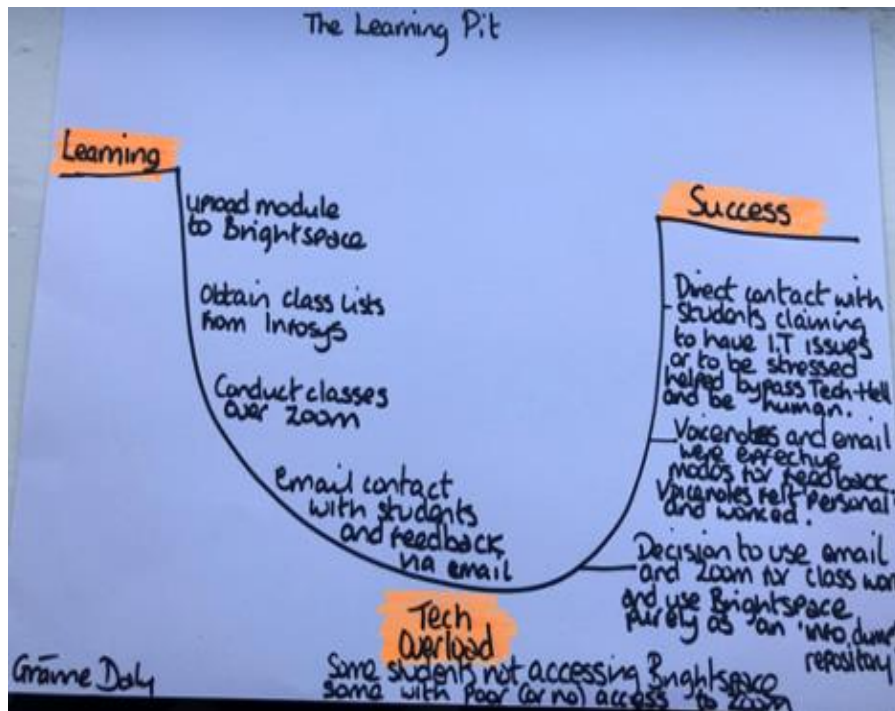 The Learning Pit
Learning
upload module
to Brightspace
Obtain class lists
from Infosys
Conduct classes
over Zoom
Email contact
with students
and feedback
via email
Tech
Overload
Some students not accessing Brightspace
some with poor (or no) access to Zoom
Success
Direct contact with
students claiming
to have I.T issues
or to be stressed
helped bypass Tech-Hell
and be 'human.'
Voicenotes and email
were effective
modes for feedback.
Voicenotes felt 'personal'
and worked.
Decision to use email
and Zoom for class wor
and use Brightspace
purely as an 'info dump'
repository
Gráinne Daly